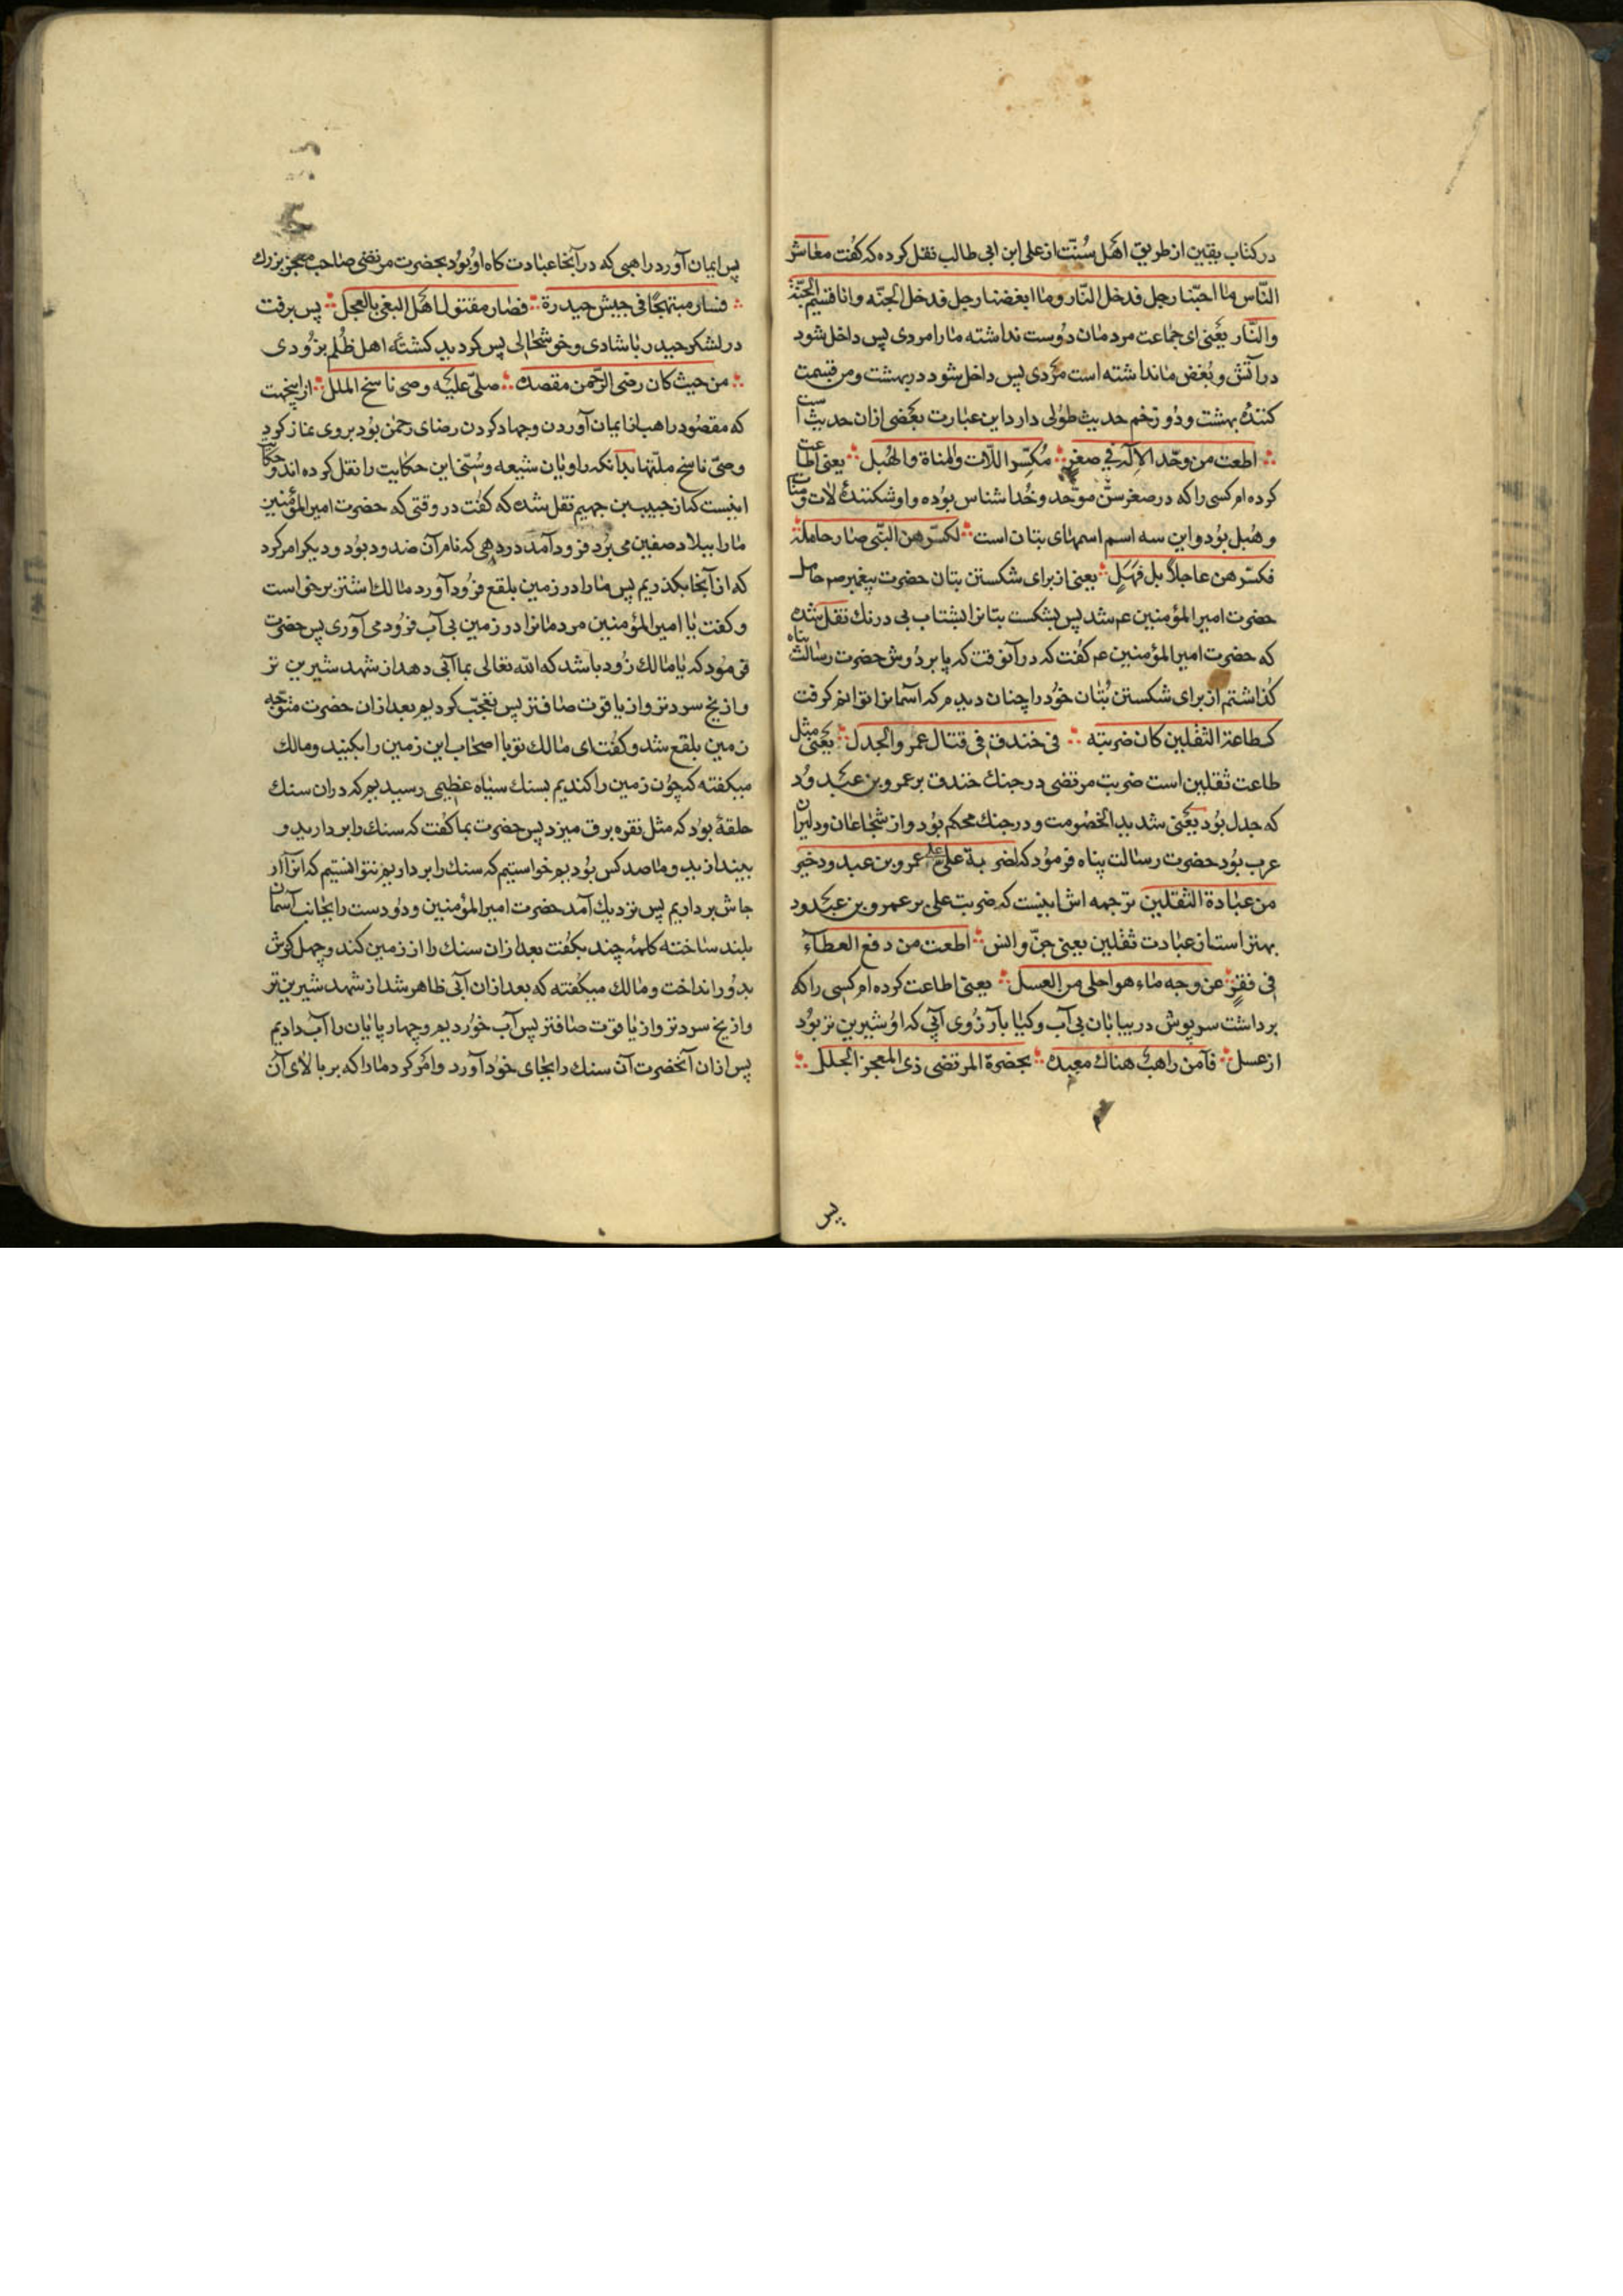 در کتاب یقین از طریق اهل سُنّت از علی ابن ابی طالب نقل کرده که کفت معاشر
النّاس ما احبّنا رجل فدخل النّار وما ابغضنا رجل فدخل الجنّه وانا قسیم الجنّة
والنّار یعنی ای جماعت مردمان دُوست نداشته ما را مردی پس داخل شود
در آتش و بُغض ما نداشته است مَردی پس داخل شود در بهشت ومن قسمت
کنندهٔ بهشت ودُوزخم حدیث طوُلی دارد این عبارت بعَضی ازان حدیث است
اطعت من وحّد الاِله فی صغرٍ مُکسّر اللّات والمناة والهُبل یعنی اطاعت
کرده ام کسی را که در صغر سنّ موّحد وخُدا شناس بوُده واو شکنندهٔ لات ومنات
وهُبل بوُد واین سه اسم اسمهای بتان است لکسّرهن النّبی صار حامله
فکسّرهن عاجلاً بل فهَلٍ یعنی از برای شکستن بتان حضرت پیغمبر صم حامل
حضرت امیر المؤمنین عم شد پس بشکست بتانرا بشتاب بی درنك نقل شده
که حضرت امیر المؤمنین عم کفت که در آنوقت که پا بر دُوش حضرت رسالت پناه
کذاشتم از برای شکستن بُتان خوُد را چنان دیدم که آسمانرا توانم کرفت
کطاعة الثقلین کان ضربته فی خندقٍ فی قتال عمَر والجدل یعَنی مثل
طاعت ثقلین است ضربت مرتضی در جنك خندق بر عمرو بن عبَد ودُ
که جدل بوُد یعَنی شدید الخصُومت ودر جنك محکم بوُد واز شجاعان ودلیران
عرب بوُد حضرت رسالت پناه فرموُد که لضربة علی علی عمرو بن عبدود خیر
من عبادة الثقلین ترجمه اش اینست که ضربت علی بر عمرو بن عبَدود
بهتر است از عبادت ثقلین یعنی جنّ وانس اطعت من دفع العطاء
فی فقرٍ عن وجه ماء هو احلی من العسل یعنی اطاعت کرده ام کسی را که
برداشت سرپوش در بیابان بی آب وکیا بآرزُوی آبی که اوُ شیرین تر بوُد
از عسل فآمن راهبُ هناك معبده بحضرة المرتضی ذی المعجز الجلل
پس
پس ایمان آورد راهبی که در آنجا عبادت کاه اوُ بوُد بحضرت مرتضی صاحب معجز بزرك
فسار مبتهجًا فی جیش حیدرة فصار مقتول اهَل البغی بالعجل پس برفت
در لشکر حیدر با شادی وخوشحالی پس کردید کشتهٔ اهل ظُلم بزوُدی
من حیث کان رضی الرّحمن مقصده صلّی علیَه وصی ناسخ الملل از اینجهت
که مقصُود راهب از ایمان آوردن وجهاد کردن رضای رحمن بوُد بروی نماز کرد
وصیّ ناسخ ملّتها بدانکه راویان شیعه وسُنّی این حکایت را نقل کرده اند وحکایت
اینست که از حبیب بن جهیم نقل شده که کفُت در وقتی که حضرت امیر المؤمنین
ما را ببلاد صفین می برُد فروُد آمد در دهی که نام آن صدود بوُد ودیکر امر کرد
که از آنجا بکذریم پس ما را در زمین بلقع فروُد آورد مالك اشتر برخواست
وکفت یا امیر المؤمنین مردمانرا در زمین بی آب فروُد می آوری پس حضرت
فرموُد که یا مالك زوُد باشد که الله تعالی بما آبی دهد از شهد شیرین تر
واز یخ سرد تر واز یاقوت صاف تر پس تعجّب کردیم بعد ازان حضرت متوّجه
زمین بلقع شد وکفُت ای مالك تو با اصحاب این زمین را بکنید ومالك
میکفته که چوُن زمین را کندیم بسنك سیاه عظیمی رسیدیم که دران سنك
حلقهٔ بوُد که مثل نقره برق میزد پس حضرت بما کفت که سنك را بردارید و
بیندازید وما صد کس بوُدیم خواستیم که سنك را برداریم نتوانستیم که آنرا از
جاش برداریم پس نزدیك آمد حضرت امیر المؤمنین ودوُ دست را بجانب آسمان
بلند ساخته کلمهٔ چند بکفُت بعد ازان سنك را از زمین کند وچهل کوش
بدوُر انداخت ومالك میکفُته که بعد ازان آبی ظاهر شد از شهد شیرین تر
واز یخ سرد تر واز یاقوت صاف تر پس آب خوُردیم وچهار پایان را آب دادیم
پس ازان آنحضرت آن سنك را بجای خوُد آورد وامَر کرد ما را که بر بالای آن